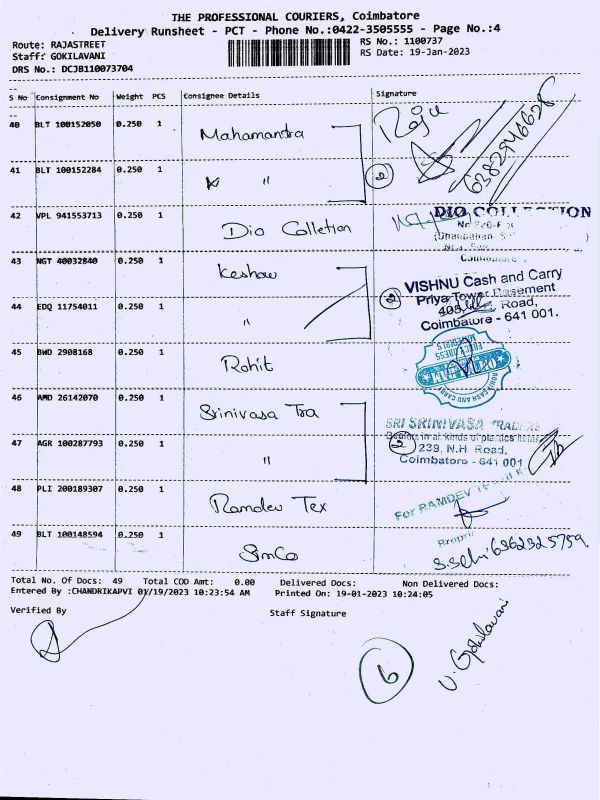 THE PROFESSIONAL COURIERS, Coimbatore
Delivery Runsheet - PCT - Phone No.:0422-3505555 - Page No.:4
Route: RAJASTREET
RS No.: 1100737
Staff: GOKILAVANI
RS Date: 19-Jan-2023
DRS No.: DCJB110073704
S No Consignment No Weight PCS Consignee Details Signature
40 BLT 100152050 0.250 1 Mahamantra Raju 6382946628
41 BLT 100152284 0.250 1 " 2
42 VPL 941553713 0.250 1 Dio Colletion DIO COLLECTION
Coimbatore
43 NGT 40032840 0.250 1 Keshav
VISHNU Cash and Carry
Priya Tower Basement
44 EDQ 11754011 0.250 1 " 2
Road,
Coimbatore - 641 001.
45 BWD 2908168 0.250 1 Rohit
46 AMD 26142070 0.250 1 Srinivasa Tra
SRI SRINIVASA TRADERS
Dealers in all kinds of plastics items
47 AGR 100287793 0.250 1 " 2
239, N.H. Road,
Coimbatore - 641 001
48 PLI 200189307 0.250 1 Ramdev Tex
For RAMDEV
49 BLT 100148594 0.250 1 SimCo
S.Selvi 6362325759
Total No. Of Docs: 49 Total COD Amt: 0.00 Delivered Docs: Non Delivered Docs:
Entered By :CHANDRIKAPVI 01/19/2023 10:23:54 AM Printed On: 19-01-2023 10:24:05
Verified By
Staff Signature
6
U. Gokilavani